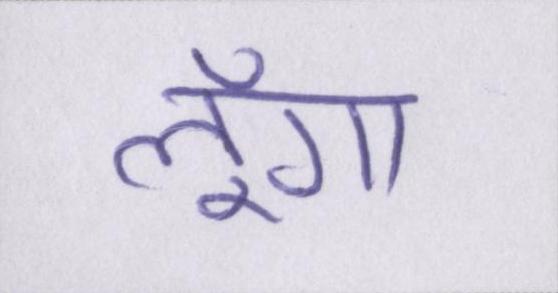 लूँगा